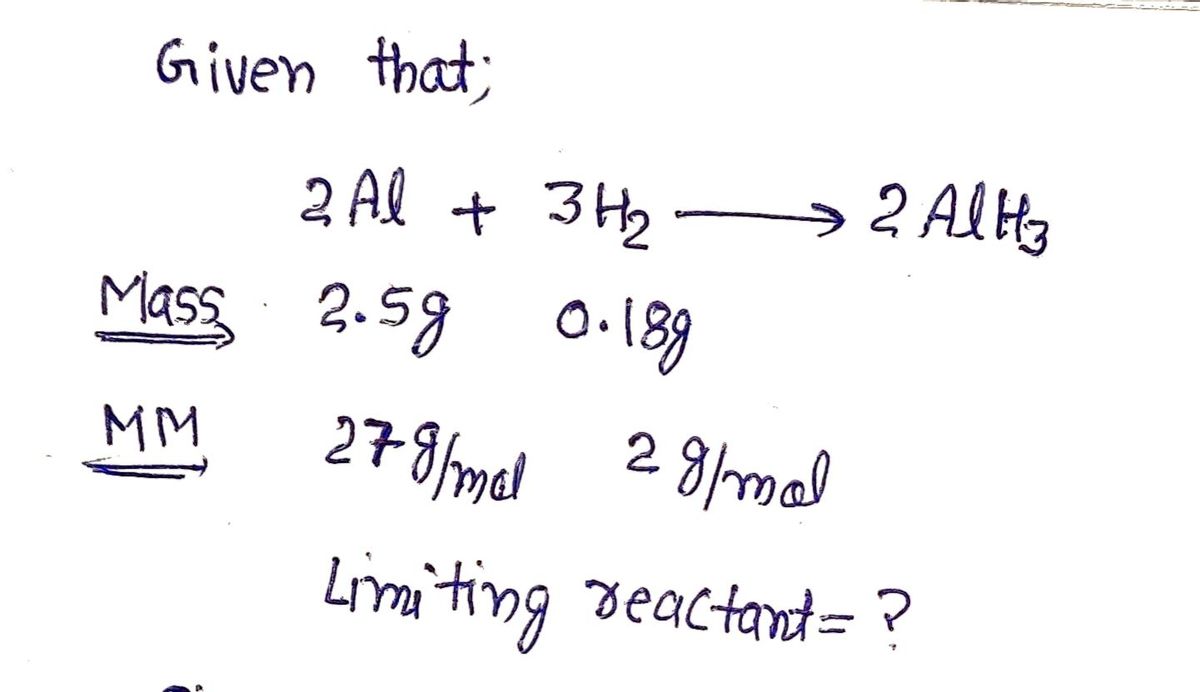 Given that;
2 Al + 3 H₂ ⟶ 2 AlH₃
Mass 2.5g 0.18g
MM 27 g/mol 2 g/mol
Limiting reactant = ?